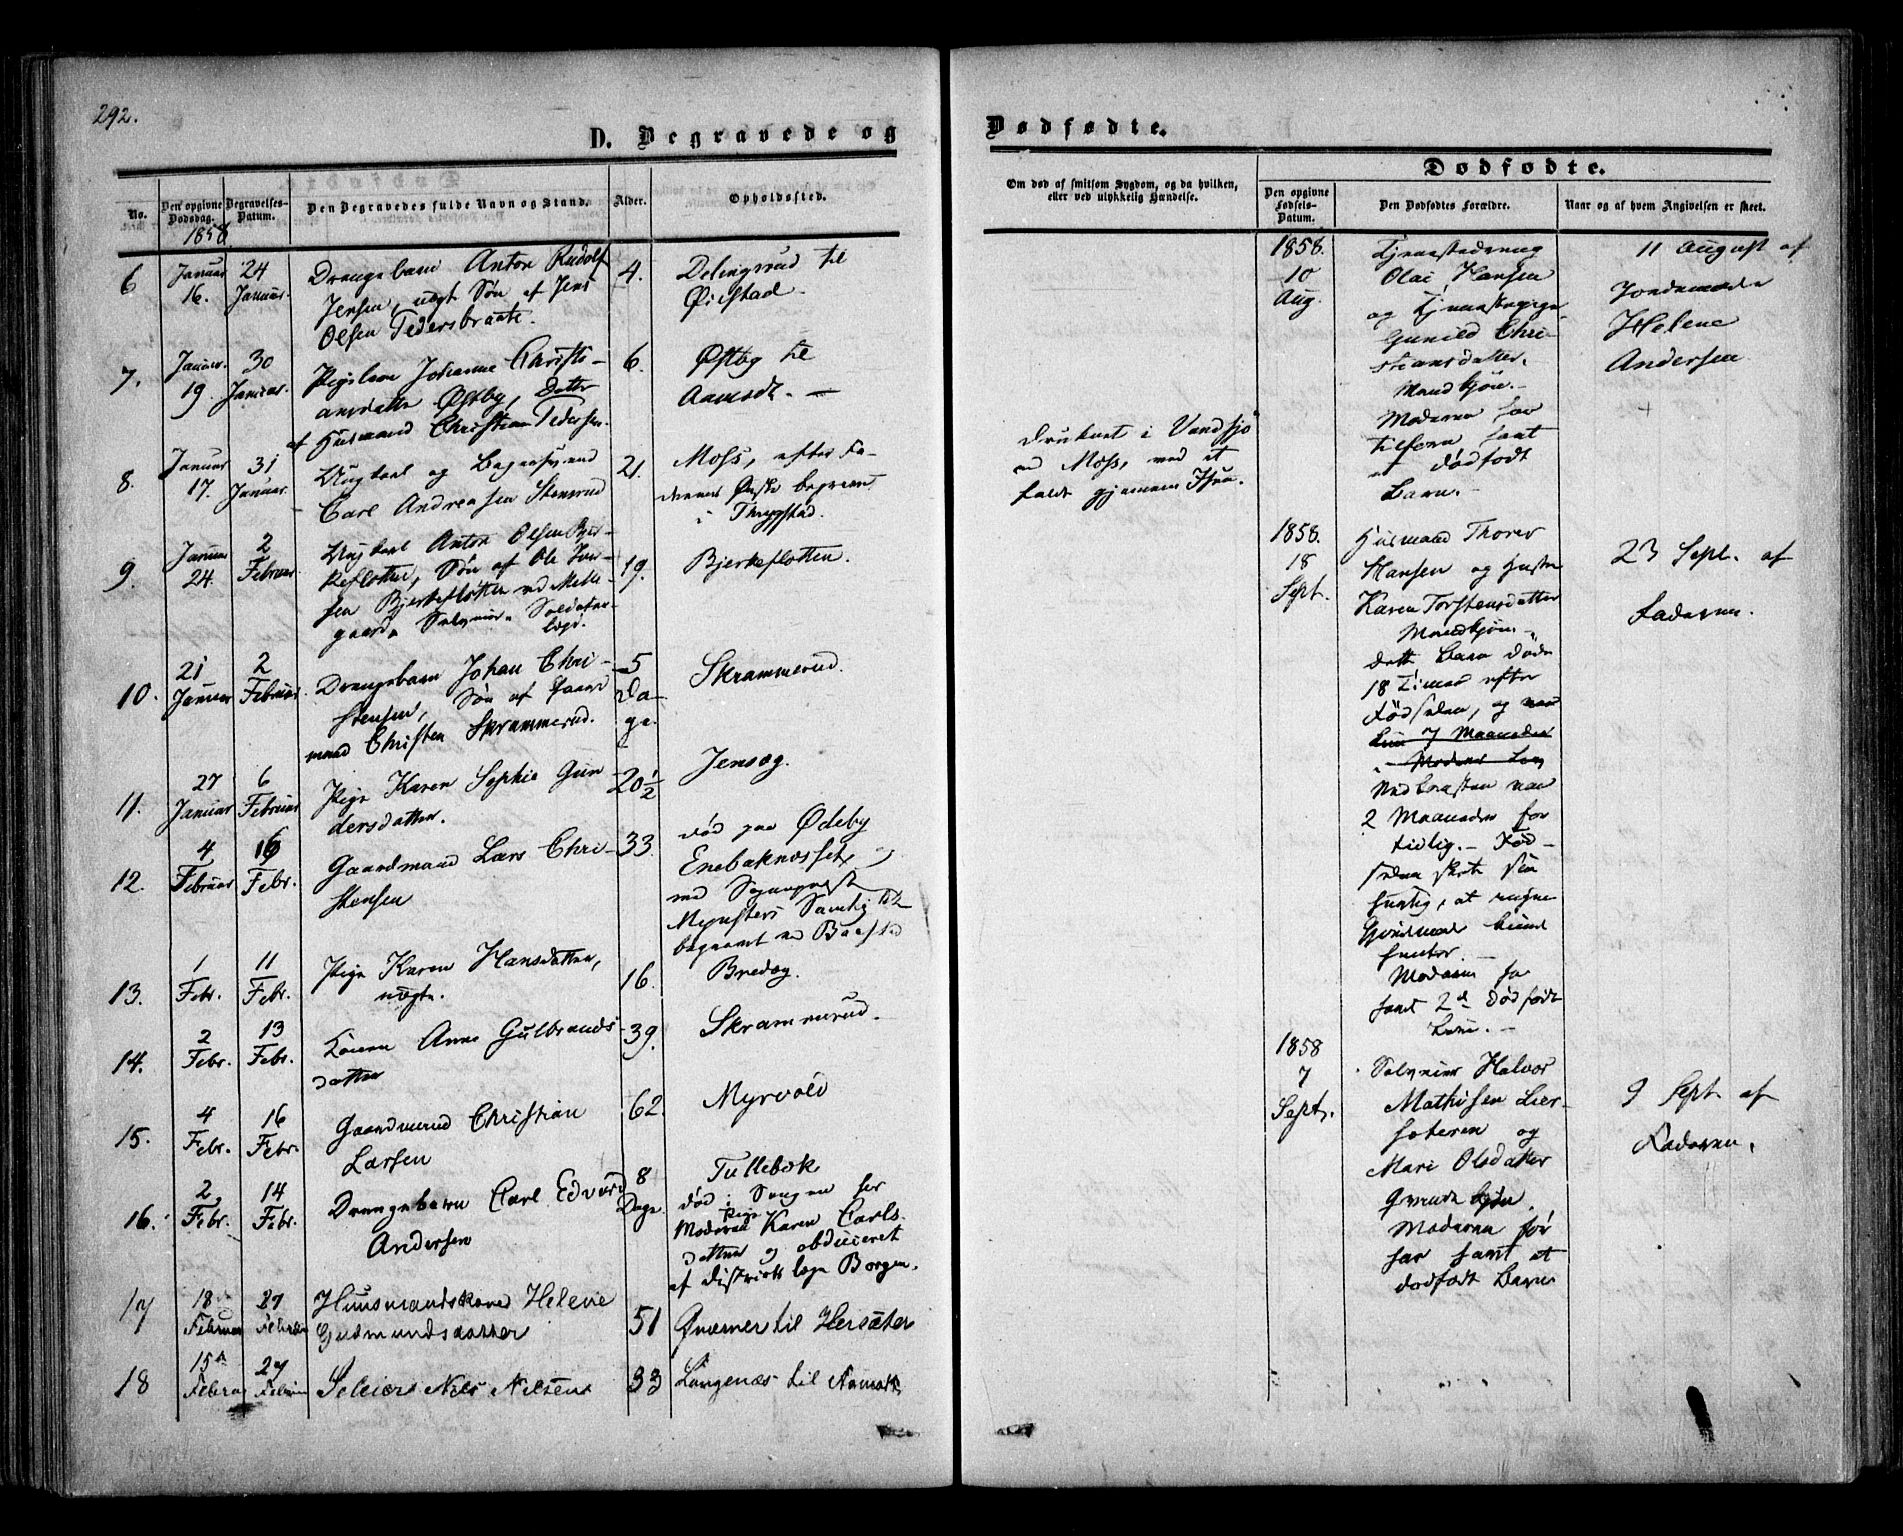 292.
D. Begravede og
No.
Den opgivne Dødsdag.
Begravelses-Datum.
Den Begravedes fulde Navn og Stand.
Alder.
Opholdssted.
1858
6
Januar 16.
24 Januar.
Drengebarn Anton Rudolf
Jensen, uægt. Søn af Jens
Olsen Pedersbraate.
4.
Delingsrud til
Øiestad
7.
Januar. 19.
30 Januar.
Pigebarn Johanne Christi-
ansdatter Østby, Datter
af Husmand Christian Pedersen.
6.
Østby til
8.
Januar 17.
31 Januar.
Ungkarl og
Carl Andreasen Stensrud
21.
Moss, efter Fa-
derens Ønske begravet
i Thrygstad.
9.
Januar 24.
2 Februar
Ungkarl Anton Olsen Bjer-
keflotten, Søn af Ole
Bjerkeflotten
19.
Bjerkeflotten.
10.
21 Januar
2 Februar
Drengebarn Johan Chri-
stensen, Søn af Gaard-
mand Christen Skrammerud.
5
Da-
ge.
Skrammerud.
11.
27 Januar
6 Februar
Pige Karen Sophie Gun
dersdatter.
20 1/2
Jensæg.
12.
4 Februar
16 Febr.
Gaardmand Lars Chri-
stensen
33.
død paa Ødeby
Enebaknesset,
med Sognepræst
Mynsters Samtykke
begravet ved Baastad
13.
1 Febr.
11 Febr.
Pige Karen Hansdatter,
uægte.
16.
Bredæg.
14.
2 Febr.
13 Febr.
Konen Anne Gulbrands-
datter
39.
Skrammerud.
15.
4 Febr.
16 Febr.
Gaardmand Christian
Larsen
62.
Myrvold
16.
2 Febr.
14 Febr.
Drengebarn Carl Edvard
Andersen
8
Dage.
Tullebæk
død i Sengen hos
Moderen Pige Karen Carls-
datter og obduceret
af Districtslæge Borgen.
17
18 Februar
27 Februar
Huusmandskone Helene
Gudmundsdatter
51
Qværner til Hersæter
18
15de Februar
27 Februar
Seleier Nils Nilsen
33
Langenæs til
Dødfødte.
Om død af smitsom Sygdom, og da hvilken,
eller ved ulykkelig Hændelse.
Dødfødte.
Den opgivne Fødsels-Datum.
Den Dødfødtes Forældre.
Naar og af hvem Angivelsen er skeet.
druknet i Vandsjø
ved Moss, ved at
falde gjennem Isen.
1858.
10
Aug.
Tjenestedreng
Olai Hansen
og Tjenestepige
Gunild Chri-
stiansdatter.
Mandkjøn.
Moderen har
tilforn havt
et dødfødt
Barn.
11 August af
Jordemoder
Helene
Andersen
1858.
18
Sept.
Husmand Thorer
Hansen og Hustru
Karen Torstensdatter
Mandkjøn
dette Barn døde
18 Timer efter
Fødselen, og var
7 Maaneder
Nedkomsten var
2 Maaneder for
tidlig. Fød-
selen skete saa
hurtig, at ingen
Gjordmoder kunde
hentes.
Moderen har
havt 2de dødfødte
Børn.
23 Sept. af
Faderen.
1858
7
Sept.
Selveier Halvor
Mathisen Lier-
foteren og
Mari Olsdatter
Qvindekjøn.
Moderen før
har havt et
dødfødt Barn
9 Sept af
Faderen.